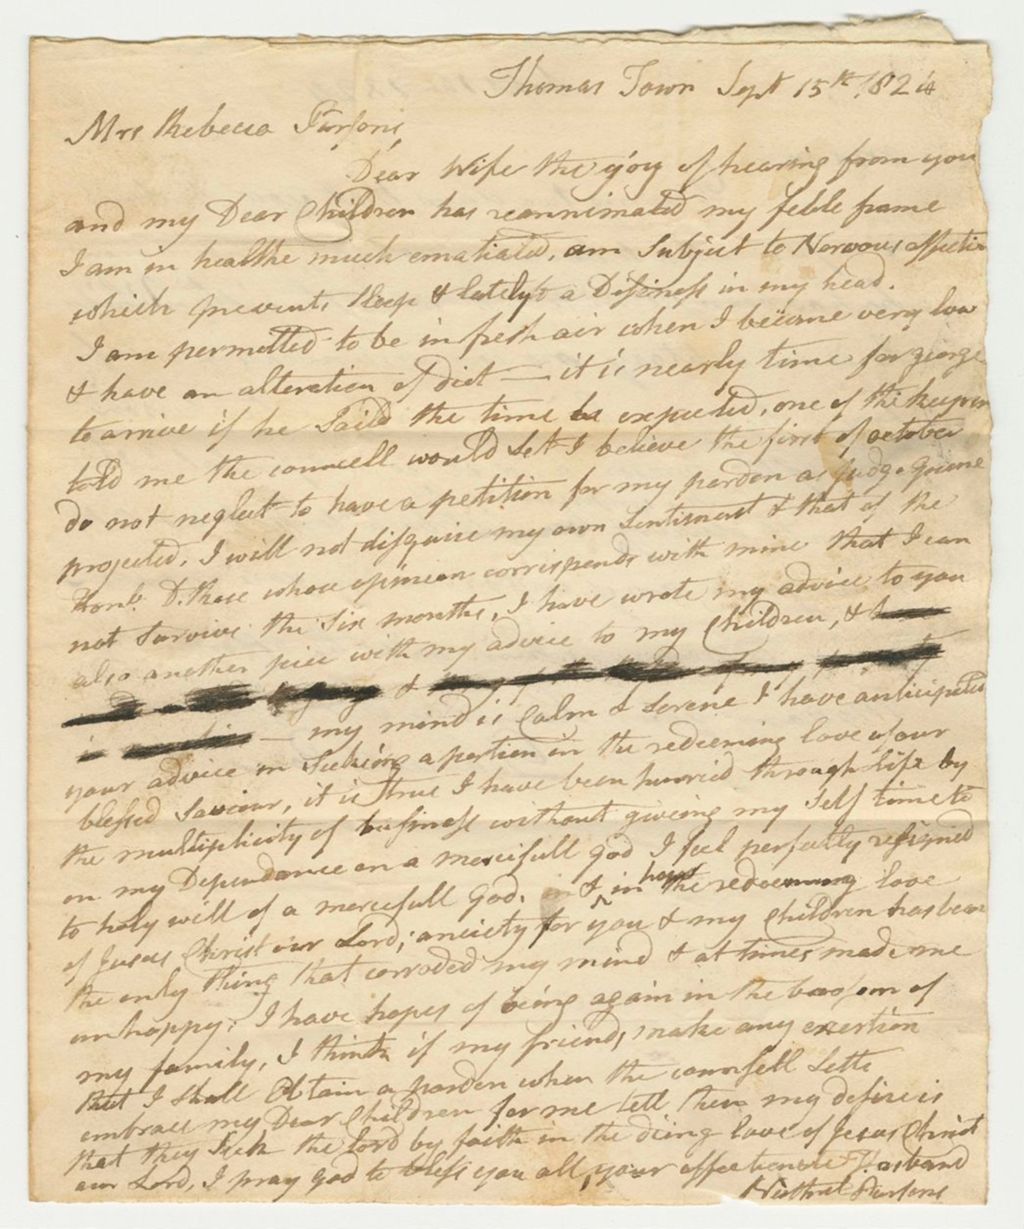 Thomas Town Sept 15th 1824
Mrs Rebecca Parsons,
Dear Wife the yoy of hearing from you
and my Dear Children has reannimated my feble frame
I am in healthe much ematiated, am Subject to Nervous affection
which prevents sleep & lately to a Disiness in my head.
I am permitted to be in fresh air when I become very low
& have an alteration of diet — it is nearly time for george
to arrive if he Saild the time he expected, one of the keepers
told me the councell would Sett I believe the first of october
do not neglect to have a petition for my pardon as judge
projected, I will not disguise my own Sentiment & that of the
Honb. D. Rose whose opinion corrisponds with mine that I can
not Survive the Six months, I have wrote my advice to you
also another piece with my advice to my Children, &
&
— my mind is Calm & Serene I have anticipated
your advice in Seeking a portion in the redeeming love of our
blessed Saviour, it is true I have been hurried through life by
the multiplicity of business without giveing my Self time to
on my Dependance on a mercifull god I feel perfectly resigned
to holy will of a mercifull God. & in hopes the redeeming love
of Jesus Christ our Lord; anxiety for you & my Children has been
the only thing that corroded my mind & at times made me
unhappy; I have hopes of being again in the boosom of
my family, I think if my friends make any exertion
that I Shall Obtain a pardon when the counsell Setts
embrace my Dear Children for me tell them my desire is
that they Seek the Lord by faith in the dieing love of Jesus Christ
our Lord, I pray god to bless you all, your affectionate Husband
Parsons